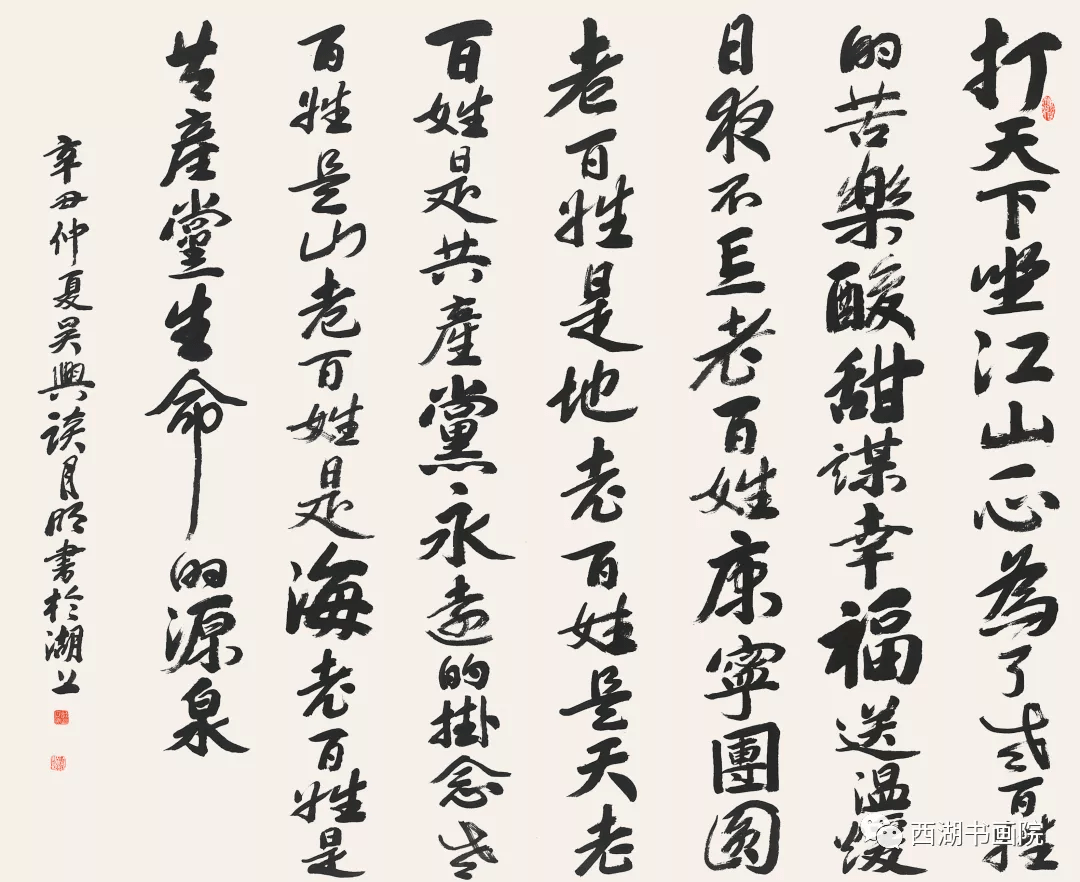 打天下坐江山一心為了老百姓
的苦樂酸甜謀幸福送温暖
日夜不忘老百姓康寧團圓
老百姓是地老百姓是天老
百姓是共產黨永遠的掛念老
百姓是山老百姓是海老百姓是
共產黨生命的源泉
辛丑仲夏吴興談月明書於湖上
西湖书画院